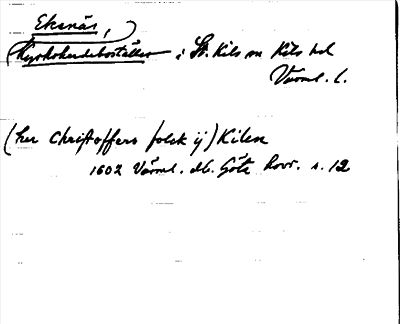 Eksnäs,
Kyrkoherdebostället i St. Kils sn Kils hd
Värml. l.
(her Christoffers folck ij) Kilen
1602 Värml. db. Göta hovr. s. 12